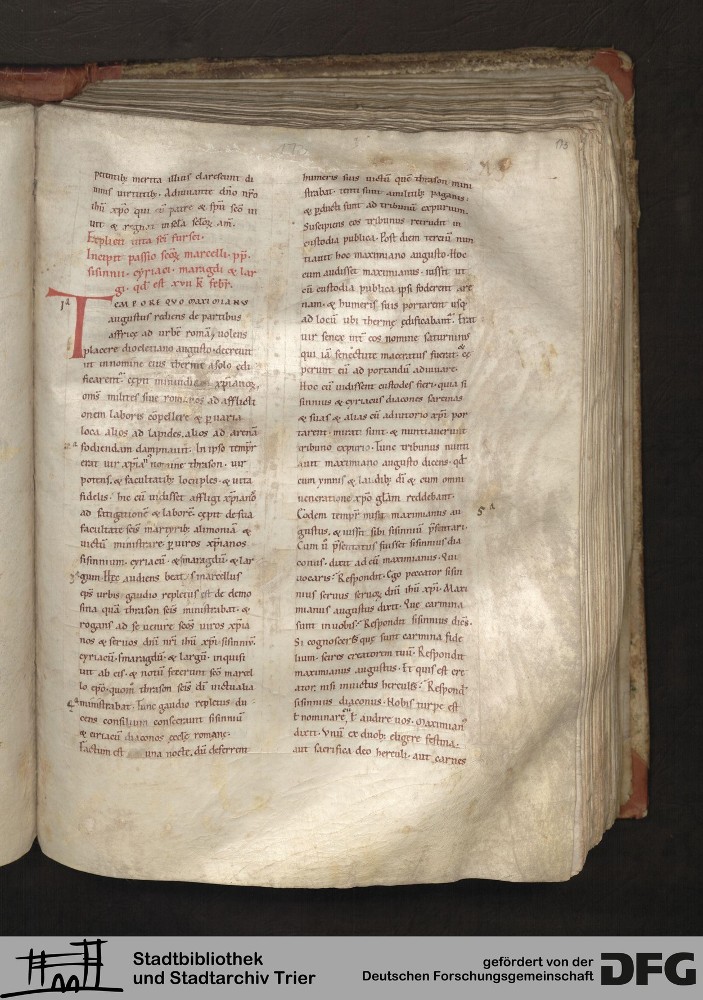 173
petentib; merita illius clarescunt di
uinis uirtutib;. Adiuuante dño nrõ
ihũ xpõ qui cũ patre & spũ scõ ui
uit & regnat in scła scłoꝝ. am̃.
Explicit uita sc̃i fursei.
Incipit passio sc̃oꝝ marcelli. pp̃.
sisinnii. cyriaci. maragdi & lar
gi. qd̃ est xvii k̃ febr̃.
1ᵃ TEMPORE QVO MAXIMIANVS
augustus rediens de partibus
affrice ad urbẽ romã, uolens
placere diocletiano augusto. decreuit
ut in nomine eius thermę a solo edi
ficarent̃. cępit inuidia xp̃ianoꝝ,
om̃s milites siue romanos ad afflicti
onem laboris cõpellere & p uaria
loca alios ad lapides. alios ad arenã
sodiendam dampnauit. In ipso tempr̃
erat uir xp̃ian' nomine thrason. uir
potens. & facultatib; locuples. & uita
fidelis. hic cũ uidisset affligi xp̃ianos
ad fatigationẽ & laborẽ. cępit de sua
facultate sc̃is martyrib; alimoniã &
uictũ ministrare. p uiros xp̃ianos
sisinnium. cyriacũ. & smaragdũ. & lar
gum. Hęc audiens beat' marcellus
ep̃s urbis. gaudio repletus est de elemo
sina quã thrason sc̃is ministrabat. &
rogans ad se uenire sc̃os uiros xp̃ia
nos & seruos dñi nr̃i ihũ xp̃i. sisinniũ.
cyriacũ. smaragdũ. & largũ. inquisi
uit ab eis. & notũ fecerunt sc̃o marcel
lo ep̃o. quom̃ thrason sc̃is di uictualia
ministrabat. Tunc gaudio repletus du
cens consilium consecrauit sisinniũ
& ciriacũ diaconos ęcclę romanę.
Factum est una nocte. dũ deferrent
humeris suis uictũ quẽ thrason mini
strabat. tenti sunt a militib; paganis.
& pducti sunt ad tribunũ expurium.
Suscipiens eos tribunus retrudit in
custodia publica. Post diem terciũ nun
tiauit hoc maximiano augusto. Hoc
cum audisset maximianus. iussit ut
cũ custodia publica ipsi foderent are
nam. & humeris suis portarent usq;
ad locũ ubi thermę ędificabant̃. Erat
uir senex int̃ eos nomine saturninus
qui iã senectute maceratus fuerat. & cę
perunt eũ ad portandũ adiuuare.
Hoc cũ uidissent custodes fieri. quia si
sinnius & cyriacus diacones sarcinas
& suas & alias cũ adiutorio xp̃i por
tarent. mirati sunt. & nuntiauerunt
tribuno expurio. Tunc tribunus nunti
auit maximiano augusto dicens. qd̃
cum ymnis & laudib; di & cum omni
ueneratione xp̃o glãm reddebant.
Eodem tempr̃ misit maximianus au
gustus. & iussit sibi sisinniũ p̃sentari. 5ᵃ
Cum ũ p̃sentatus fuisset sisinnius dia
conus. dixit ad eũ maximianus. Qui
uocaris? Respondit. Ego peccator sisin
nius seruus seruoꝝ dñi ihũ xp̃i. Maxi
mianus augustus dixit. Quę carmina
sunt in uobis? Respondit sisinnius diac̃s.
Si cognosceres quę sunt carmina fide
lium. scires creatorem tuũ. Respondit
maximianus augustus. Et quis est cre
ator. nisi inuictus hercules? Respond̃
sisinnius diaconus. Nobis turpe est
& nominare eũ, ł audire uos. Maximian'
dixit. Vnũ ex duob; eligere festina.
aut sacrifica deo herculi. aut carnes
Stadtbibliothek
und Stadtarchiv Trier
gefördert von der
Deutschen Forschungsgemeinschaft
DFG